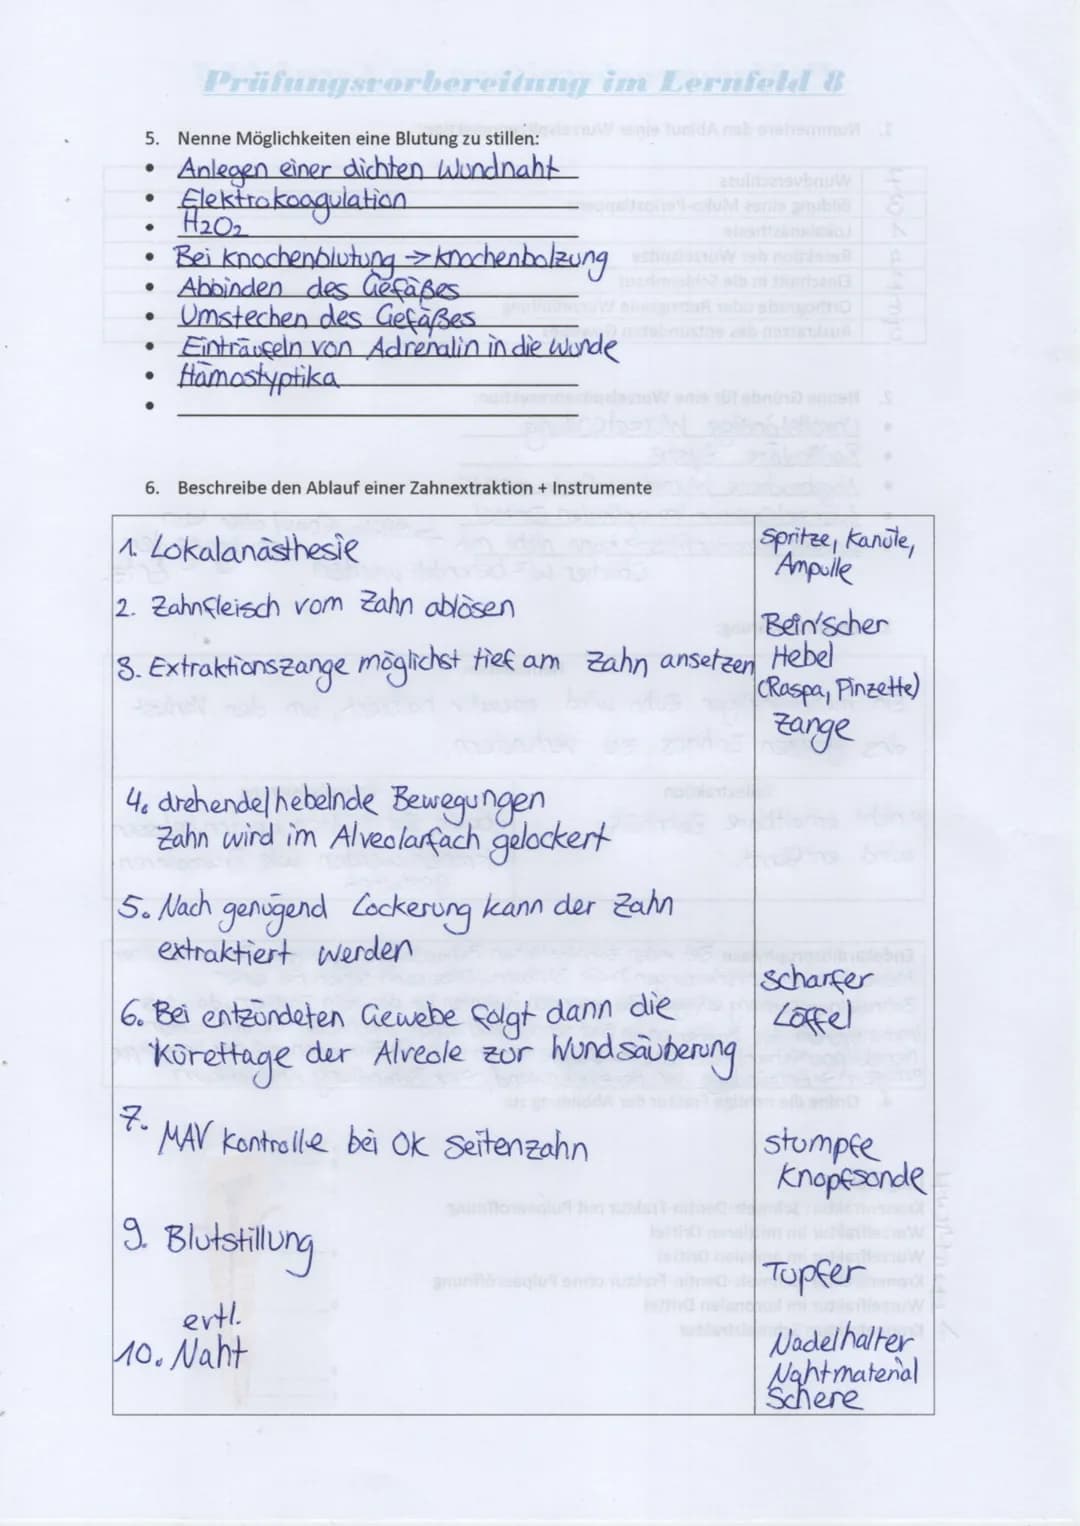 Prüfungsvorbereitung im Lernfeld 8
5. Nenne Möglichkeiten eine Blutung zu stillen:
• Anlegen einer dichten Wundnaht
• Elektrokoagulation
• H2O2
• Bei Knochenblutung → Knochenbolzung
• Abbinden des Gefäßes
• Umstechen des Gefäßes
• Einträufeln von Adrenalin in die Wunde
• Hämostyptika
•
6. Beschreibe den Ablauf einer Zahnextraktion + Instrumente
1. Lokalanästhesie
Spritze, Kanüle,
Ampulle
2. Zahnfleisch vom Zahn ablösen
Bein'scher
3. Extraktionszange möglichst tief am Zahn ansetzen
Hebel
(Raspa, Pinzette)
Zange
4. drehende/hebelnde Bewegungen
Zahn wird im Alveolarfach gelockert
5. Nach genügend Lockerung kann der Zahn
extraktiert werden
scharfer
Löffel
6. Bei entzündeten Gewebe folgt dann die
Kürettage der Alveole zur Wundsäuberung
7. MAV Kontrolle bei OK Seitenzahn
stumpfe
Knopfsonde
9. Blutstillung
Tupfer
evtl.
10. Naht
Nadelhalter
Nahtmaterial
Schere